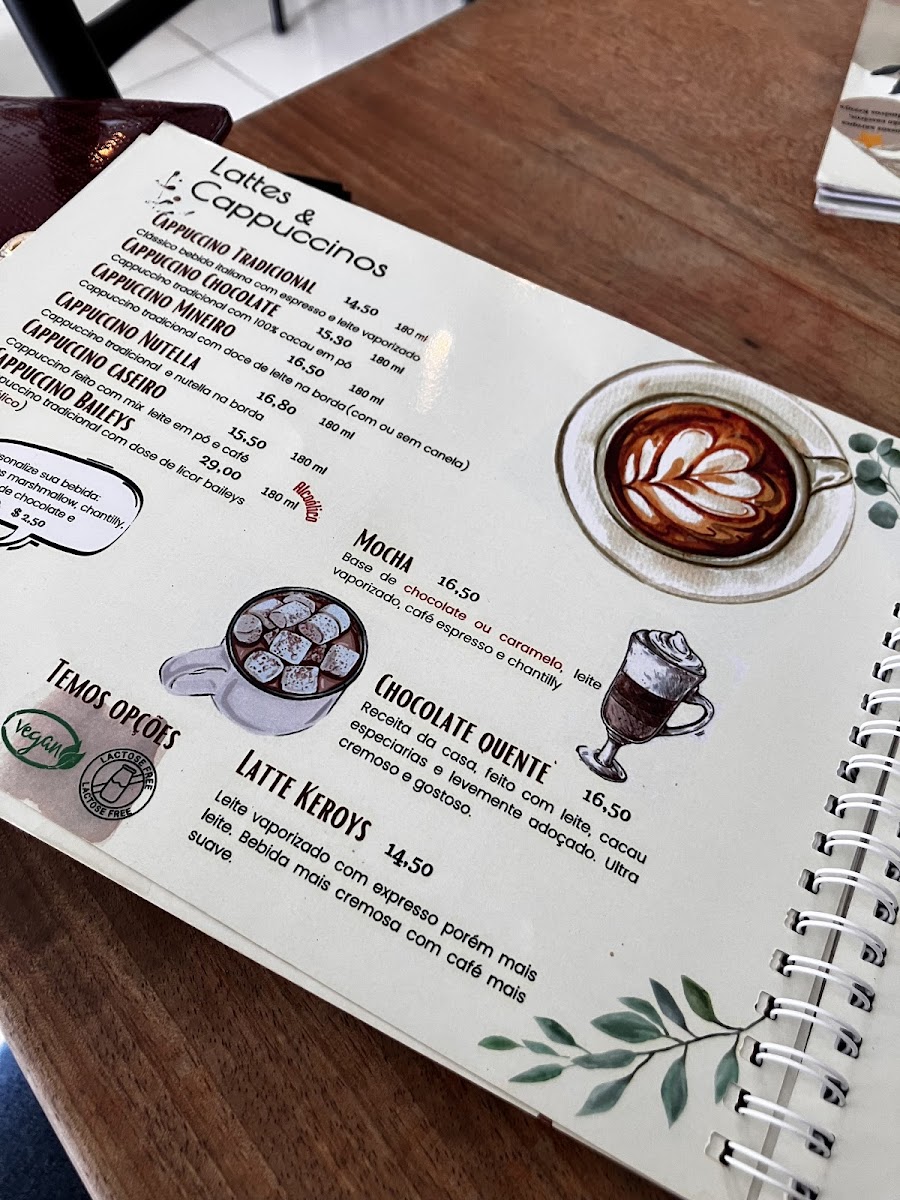 Lattes &
Cappuccinos
CAPPUCCINO TRADICIONAL 14,50 180 ml
Clássico bebida italiana com espresso e leite vaporizado
CAPPUCCINO CHOCOLATE 15,30 180 ml
Cappuccino tradicional com 100% cacau em pó
CAPPUCCINO MINEIRO 16,50 180 ml
Cappuccino tradicional com doce de leite na borda (com ou sem canela)
CAPPUCCINO NUTELLA 16,80 180 ml
Cappuccino tradicional e nutella na borda
CAPPUCCINO CASEIRO 15,50 180 ml
Cappuccino feito com mix leite em pó e café
CAPPUCCINO BAILEYS 29,00 180 ml Alcoólico
tradicional com dose de licor baileys
sua bebida:
marshmallow, chantilly,
de chocolate e
$ 2,50
MOCHA 16,50
Base de chocolate ou caramelo, leite
vaporizado, café espresso e chantilly
CHOCOLATE QUENTE 16,50
Receita da casa, feito com leite, cacau
especiarias e levemente adoçado. Ultra
cremoso e gostoso.
TEMOS OPÇÕES
vegan
LACTOSE FREE
LACTOSE FREE
LATTE KEROYS 14,50
Leite vaporizado com expresso porém mais
leite. Bebida mais cremosa com café mais
suave.